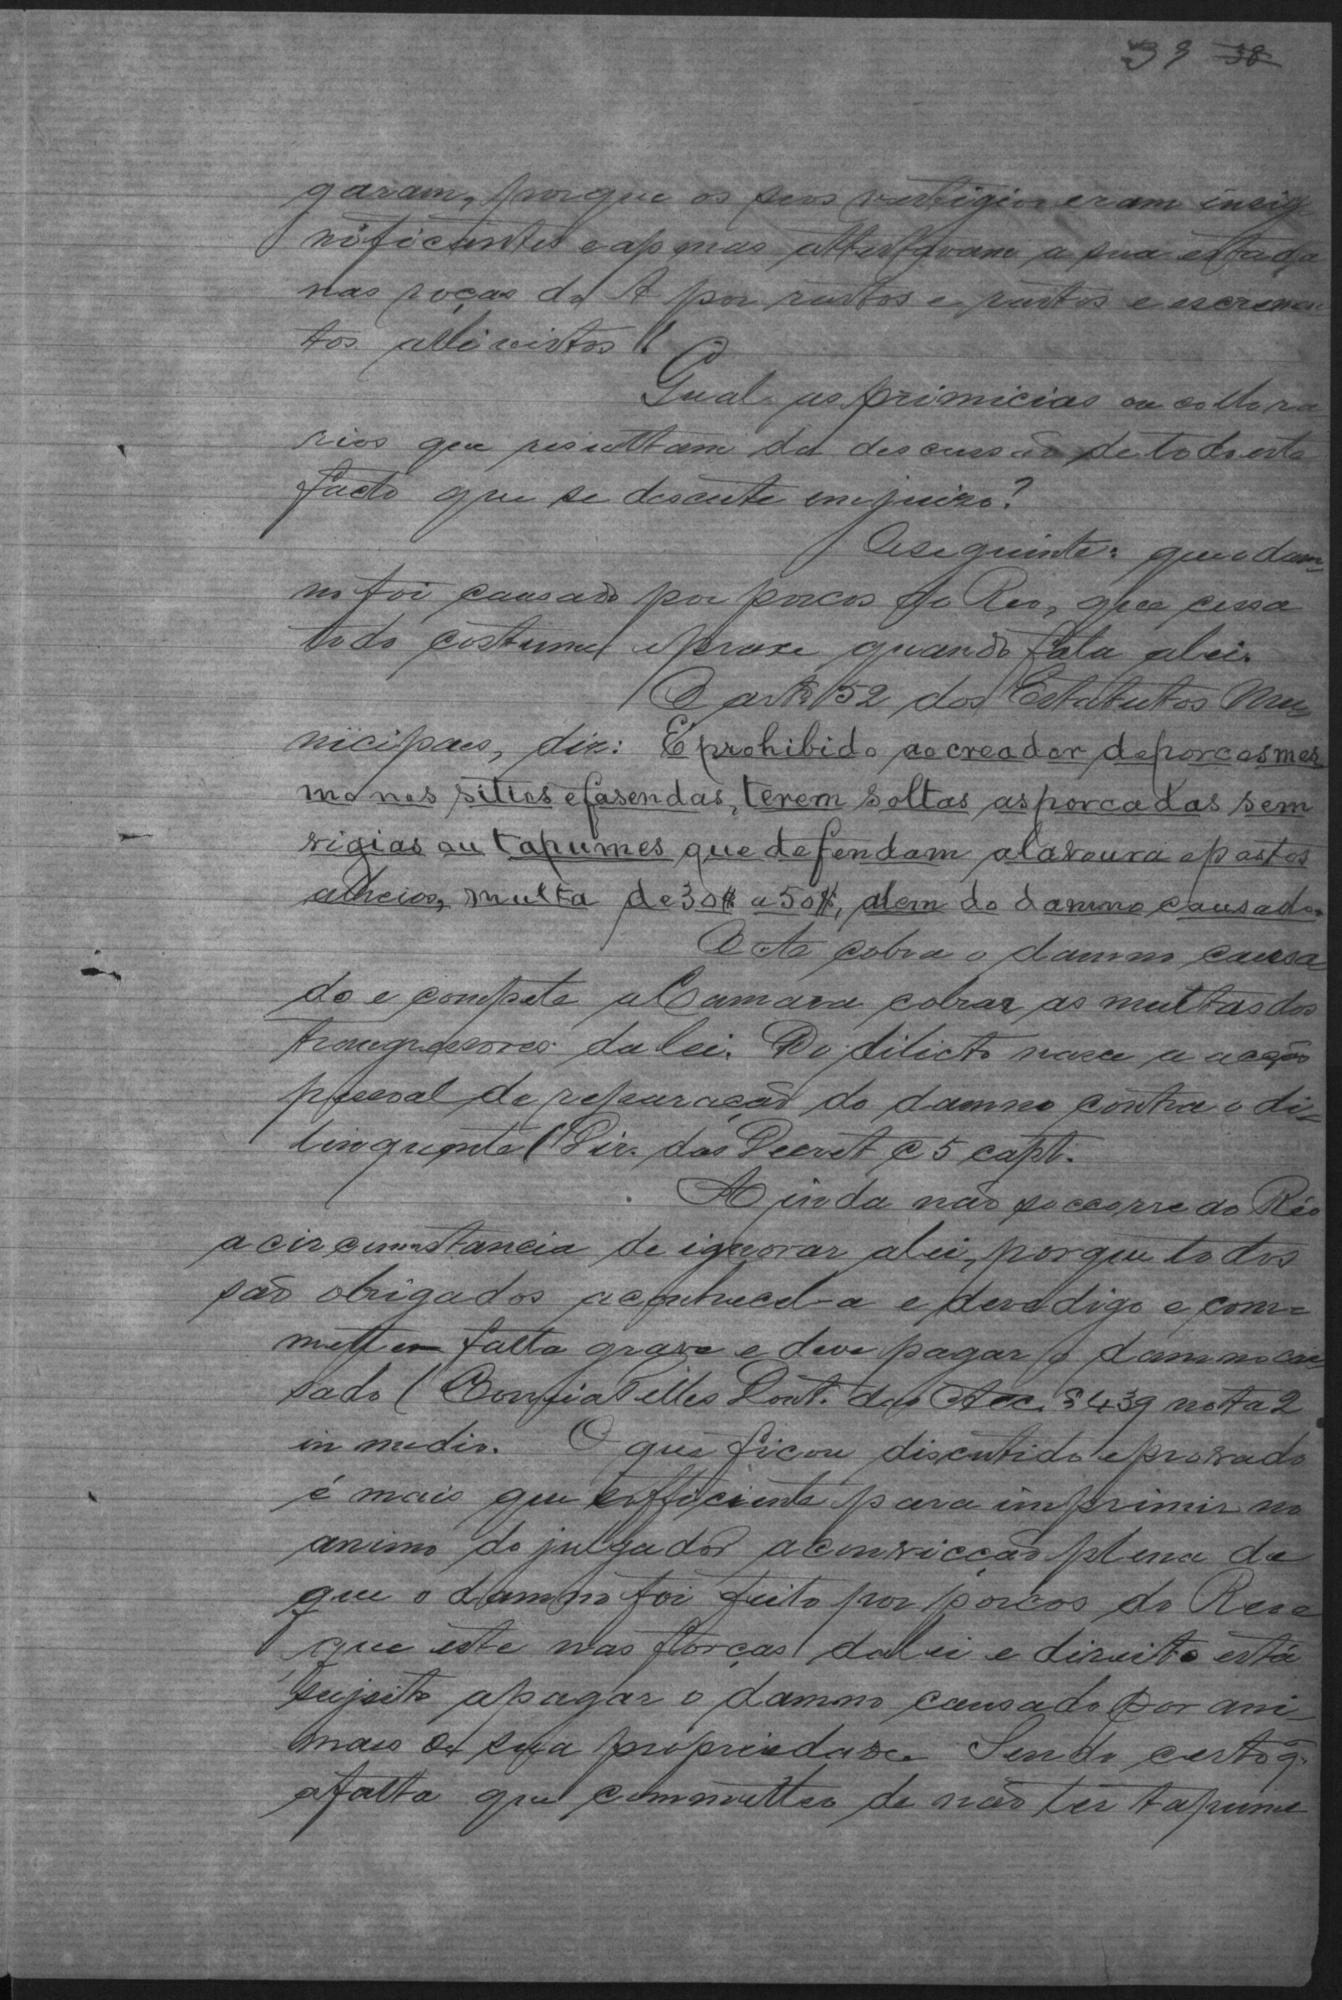 39 38
garam, porque os seus vestigios eram insig-
nificantes e apenas attestavam a sua estada
nas roças do A por rastos e rastos e escremen
tos alli vistos!
Qual as primicias ou collora
rios que resultam da descussão de todo este
facto que se descute em juizo?
O seguinte: que o dam-
no foi causado por porcos do Reo, que cessa
todo costume e praxe quando fala a lei.
O art 52 dos Estatutos Mu-
nicipaes, diz: É prohibido ao creador de porcos mes
mo nos sitios e fasendas, terem soltas as porcadas sem
vigias ou tapumes que defendam a lavoura e pastos
alheios, multa de 30$ a 50$, alem do damno causado.
O A cobra o damno causa
do e compete a Camara cobrar as multas dos
transgressores da lei. Do dilicto nasce a acção
pessoal de reparação do damno contra o di-
linquente ( Dir. das Decret C 5 capt.
Ainda não soccorre ao Réo
a circumstancia de ignorar a lei, porque todos
são obrigados a conhecel-a e deve digo e com-
mettem falta grave e deve pagar o damno cau
sado ( Correia Telles Dout. das Acc. § 439 nota 2
in medio. O que ficou discutido e provado
é mais que sufficiente para imprimir no
animo do julgador a convicção plena de
que o damno foi feito por porcos do Reo e
que este nas forças da lei e direito está
sujeito a pagar o damno causado por ani-
maes de sua propriedade. Sendo certo q.
a falta que commetteo de não ter tapume